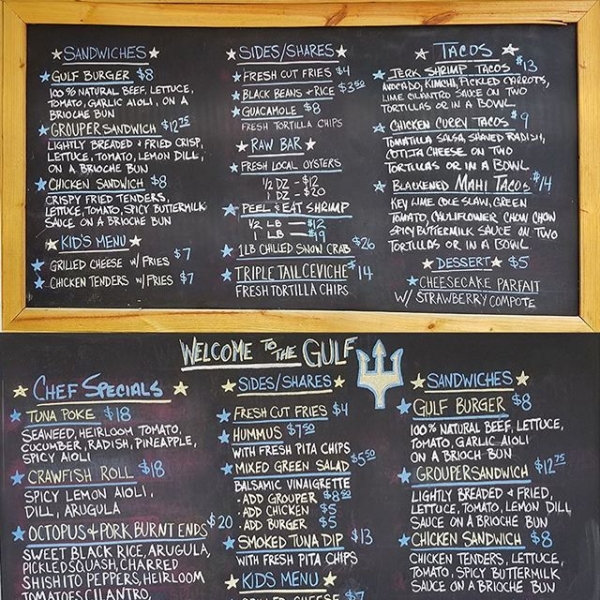 SANDWICHES
GULF BURGER $8
100% NATURAL BEEF, LETTUCE,
TOMATO, GARLIC AIOLI, ON A
BRIOCHE BUN
GROUPER SANDWICH $12.25
LIGHTLY BREADED & FRIED CRISP,
LETTUCE, TOMATO, LEMON DILL,
ON A BRIOCHE BUN
CHICKEN SANDWICH $8
CRISPY FRIED TENDERS,
LETTUCE, TOMATO, SPICY BUTTERMILK
SAUCE ON A BRIOCHE BUN
KID'S MENU
GRILLED CHEESE W/ FRIES $7
CHICKEN TENDERS W/ FRIES $7
SIDES/SHARES
FRESH CUT FRIES $4
BLACK BEANS & RICE $3.50
GUACAMOLE $8
FRESH TORTILLA CHIPS
RAW BAR
FRESH LOCAL OYSTERS
1/2 DZ - $12
1 DZ - $20
PEEL & EAT SHRIMP
1/2 LB $12
1 LB $19
1LB CHILLED SNOW CRAB $26
TRIPLE TAIL CEVICHE $14
FRESH TORTILLA CHIPS
TACOS
JERK SHRIMP TACOS $13
AVOCADO, KIMCHI, PICKLED CARROTS,
LIME CILANTRO SAUCE ON TWO
TORTILLAS OR IN A BOWL
CHICKEN CURRY TACOS $9
TOMATILLA SALSA, SHAVED RADISH,
COTIJA CHEESE ON TWO
TORTILLAS OR IN A BOWL.
BLACKENED MAHI TACOS $14
KEY LIME COLE SLAW, GREEN
TOMATO, CAULIFLOWER CHOW CHOW
SPICY BUTTERMILK SAUCE ON TWO
TORTILLAS OR IN A BOWL
DESSERT $5
CHEESECAKE PARFAIT
W/ STRAWBERRY COMPOTE
WELCOME TO THE GULF
CHEF SPECIALS
TUNA POKE $18
SEAWEED, HEIRLOOM TOMATO,
CUCUMBER, RADISH, PINEAPPLE,
SPICY AIOLI
CRAWFISH ROLL $18
SPICY LEMON AIOLI,
DILL, ARUGULA
OCTOPUS & PORK BURNT ENDS $20
SWEET BLACK RICE, ARUGULA,
PICKLED SQUASH, CHARRED
SHISHITO PEPPERS, HEIRLOOM
TOMATOES CILANTRO,
SIDES/SHARES
FRESH CUT FRIES $4
HUMMUS $7.50
WITH FRESH PITA CHIPS
MIXED GREEN SALAD $5.50
BALSAMIC VINAIGRETTE
- ADD GROUPER $8.50
- ADD CHICKEN $5
- ADD BURGER $5
SMOKED TUNA DIP $13
WITH FRESH PITA CHIPS
KIDS MENU
GRILLED CHEESE $7
SANDWICHES
GULF BURGER $8
100% NATURAL BEEF, LETTUCE,
TOMATO, GARLIC AIOLI
ON A BRIOCH BUN
GROUPER SANDWICH $12.75
LIGHTLY BREADED & FRIED,
LETTUCE, TOMATO, LEMON DILL
SAUCE ON A BRIOCHE BUN
CHICKEN SANDWICH $8
CHICKEN TENDERS, LETTUCE,
TOMATO, SPICY BUTTERMILK
SAUCE ON A BRIOCHE BUN